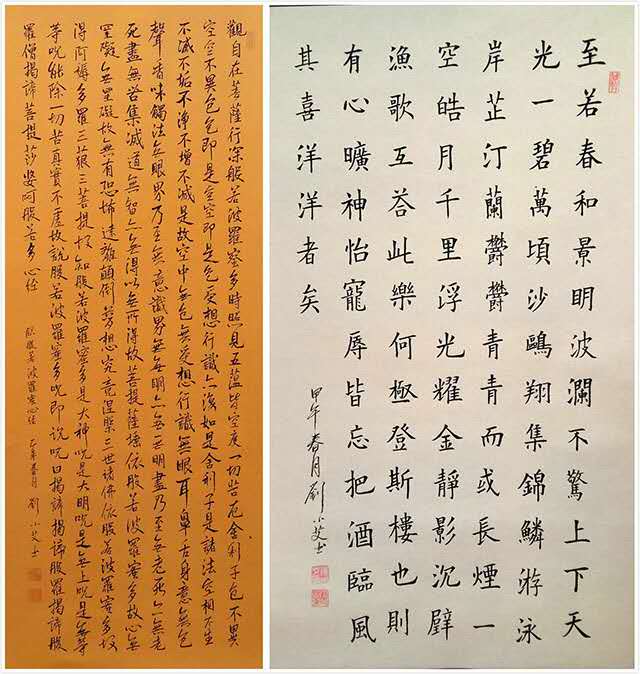 觀自在菩薩行深般若波羅蜜多時照見五蘊皆空度一切苦厄舍利子色不異
空空不異色色即是空空即是色受想行識亦復如是舍利子是諸法空相不生
不滅不垢不淨不增不減是故空中無色無受想行識無眼耳鼻舌身意無色
聲香味觸法無眼界乃至無意識界無無明亦無無明盡乃至無老死亦無老
死盡無苦集滅道無智亦無得以無所得故菩提薩埵依般若波羅蜜多故心無
罣礙無罣礙故無有恐怖遠離顛倒夢想究竟涅槃三世諸佛依般若波羅蜜多故
得阿耨多羅三藐三菩提故知般若波羅蜜多是大神咒是大明咒是無上咒是無等
等咒能除一切苦真實不虛故說般若波羅蜜多咒即說咒曰揭諦揭諦般羅揭諦般
羅僧揭諦菩提莎婆呵般若多心經
般若波羅蜜心經 乙未春月 劉小艾士
至若春和景明波瀾不驚上下天
光一碧萬頃沙鷗翔集錦鱗游泳
岸芷汀蘭鬱鬱青青而或長煙一
空皓月千里浮光耀金靜影沉璧
漁歌互荅此樂何極登斯樓也則
有心曠神怡寵辱皆忘把酒臨風
其喜洋洋者矣
甲午春月劉小艾士